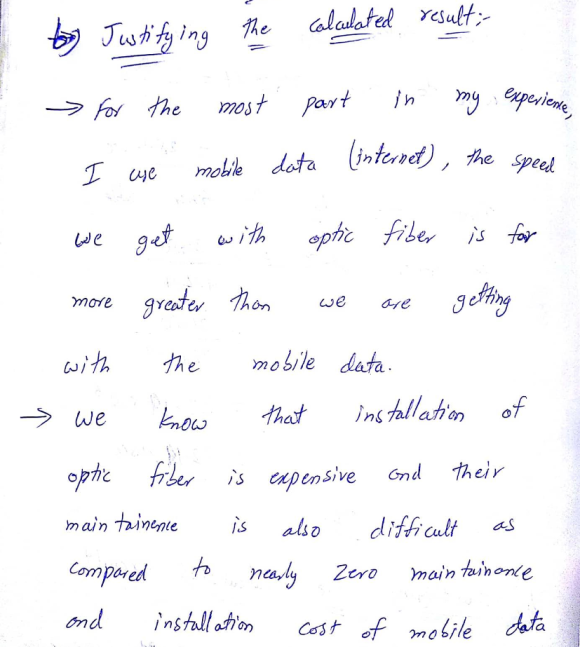 b) Justifying the calculated result:-
→ For the most part in my experience,
I use mobile data (internet), the speed
we get with optic fiber is far
more greater than we are getting
with the mobile data.
→ we know that installation of
optic fiber is expensive and their
maintainence is also difficult as
compared to nearly zero maintainance
and installation cost of mobile data